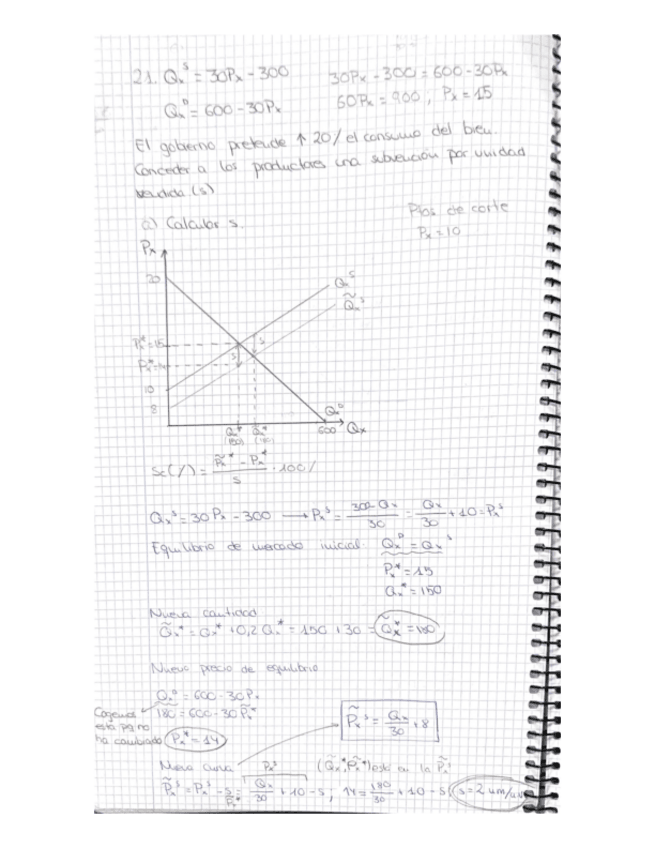 21. Qₓˢ = 30Pₓ - 300
30Pₓ - 300 = 600 - 30Pₓ
Qₓᴰ = 600 - 30Pₓ
60Pₓ = 900, Pₓ = 15
El gobierno pretende ↑ 20% el consumo del bien.
Conceder a los productores una subvención por unidad
vendida (s)
a) Calcular s.
Ptos de corte
Pₓ = 10
Pₓ
20
Qₓˢ
Q̃ₓˢ
Pₓ* = 15
s
s
10
8
Qₓᴰ
Qₓ*
(150)
Q̃ₓ*
(180)
600
Qₓ
Sc(%) = (P̃ₓ* - Pₓ*) / s · 100%
Qₓˢ = 30Pₓ - 300 → Pₓˢ = (300 - Qₓ) / 30 = Qₓ/30 + 10 = Pₓˢ
Equilibrio de mercado inicial: Qₓᴰ = Qₓˢ
Pₓ* = 15
Qₓ* = 150
Nueva cantidad
Q̃ₓ* = Qₓ* + 0,2 Qₓ* = 150 + 30 = Q̃ₓ* = 180
Nuevo precio de equilibrio
Qₓᴰ = 600 - 30Pₓ
Cogemos
180 = 600 - 30P̃ₓ*
esta pq no
ha cambiado
Pₓ* = 14
P̃ₓˢ = Qₓ/30 + 8
Nueva curva
Pₓˢ
(Q̃ₓ*, P̃ₓ*) está en la P̃ₓˢ
P̃ₓˢ = Pₓˢ - s = Qₓ/30 + 10 - s ; 14 = 180/30 + 10 - s
s = 2 um/u